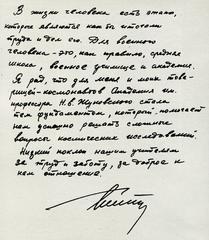 В жизни человека есть этапы,
которые являются как бы итогами
труда и дел его. Для военного
человека - это, как правило, средняя
школа, военное училище и академия.
Я рад, что для меня и моих това-
рищей-космонавтов Академия им.
профессора Н.Е. Жуковского стала
тем фундаментом, который помогает
нам успешно решать сложные
вопросы космических исследований.
Низкий поклон нашим учителям
за труд и заботу, за доброе к
нам отношение.